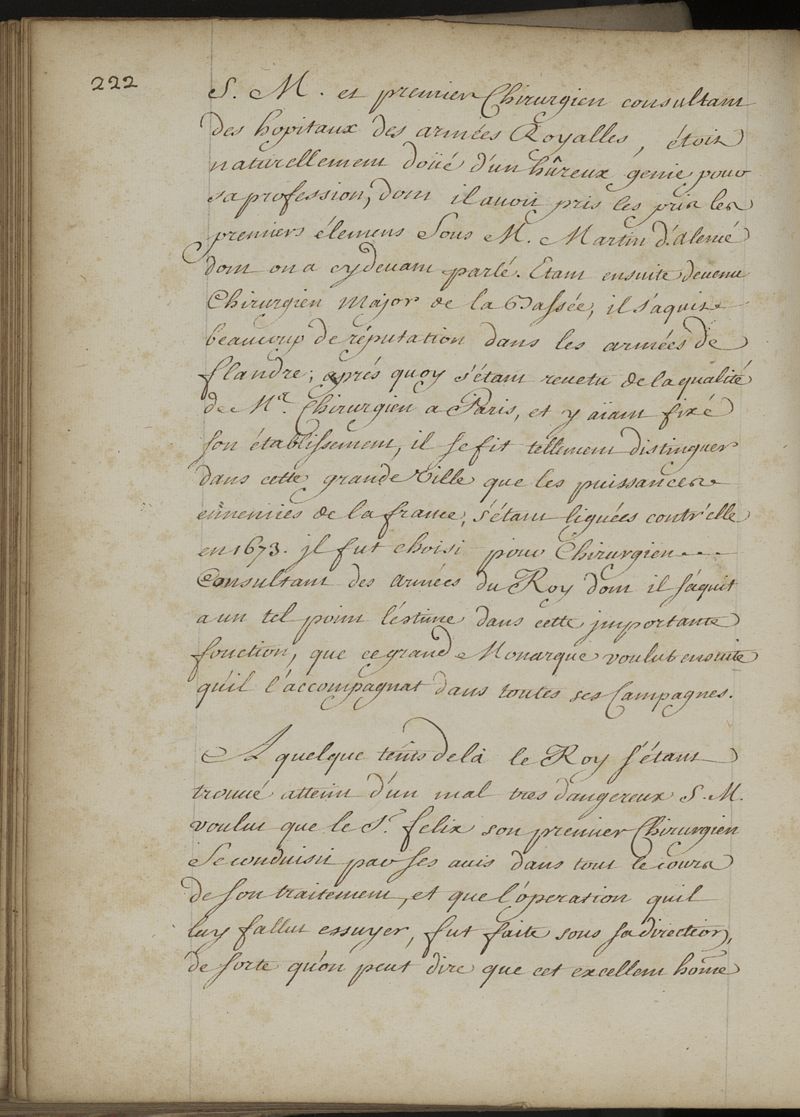 222
S. M. et premier Chirurgien consultant
des hopitaux des armées Royalles, étoit
naturellement doüé d'un hûreux genie pour
sa profession, dont il avoit pris les pris les
premiers élemens Sous M. Martin d'Alencé
dont on a cydevant parlé. Etant ensuite devenu
Chirurgien Major de la Bassée, il s'aquit
beaucoup de réputation dans les armées de
flandre; aprés quoy s'étant revetu de la qualité
de Mr. Chirurgien a Paris, et y aïant fixé
son établissement, il se fit tellement distinguer
dans cette grande Ville que les puissances
ennemies de la france, s'étant liguées contr'elle
en 1673. jl fut choisi pour Chirurgien---
Consultant des armées du Roy dont il s'aquit
a un tel point l'estime dans cette jmportante
fonction, que ce grand Monarque voulut ensuite
qu'il l'accompagnat dans toutes ses Campagnes.
A quelque tems de là le Roy s'étant
trouvé atteint d'un mal tres dangereux S. M.
voulut que le Sr. felix son premier Chirurgien
Se conduisit par ses avis dans tout le cours
de son traitement, et que l'óperation quil
luy fallut essuyer, fut faite sous sa direction,
de sorte qu'on peut dire que cet excellent home